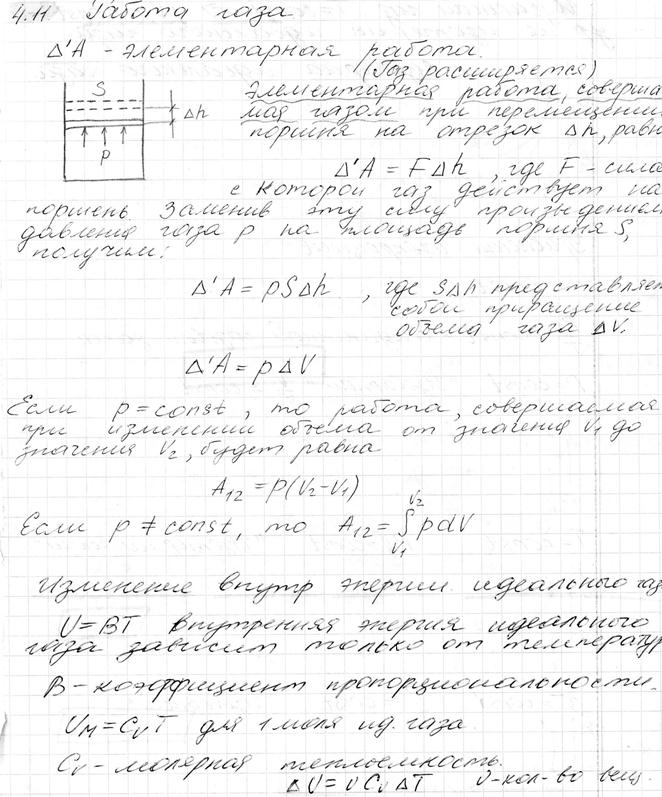 4.11 Работа газа
Δ'A - элементарная работа.
(Газ расширяется)
S
Δh
p
Элементарная работа, соверша
мая газом при перемещении
поршня на отрезок Δh, равн
Δ'A = FΔh , где F - сила
с которой газ действует на
поршень. Заменив эту силу произведением
давления газа p на площадь поршня S,
получим:
Δ'A = pSΔh , где SΔh представляет
собой приращение
объема газа ΔV.
Δ'A = pΔV
Если p = const, то работа, совершаемая
при изменении объема от значения V₁ до
значения V₂, будет равна
A₁₂ = p(V₂-V₁)
Если p ≠ const, то A₁₂ = ∫ p dV
V₂
V₁
Изменение внутр энергии идеального газ
U = BT внутренняя энергия идеального
газа зависит только от температур
B - коэффициент пропорциональности.
Uм = CᵥT для 1 моля ид. газа
Cᵥ - молярная теплоемкость.
ΔU = νCᵥΔT ν - кол-во вещ.